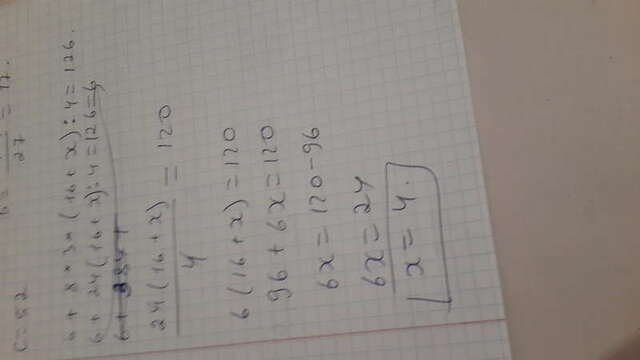 27
6 + 8 * 3 * (16 + x) : 4 = 126.
6 + 24 (16 + x) : 4 = 126 = 6
24 (16 + x) = 120
4
6 (16 + x) = 120
96 + 6x = 120
6x = 120 - 96
6x = 24
x = 4.